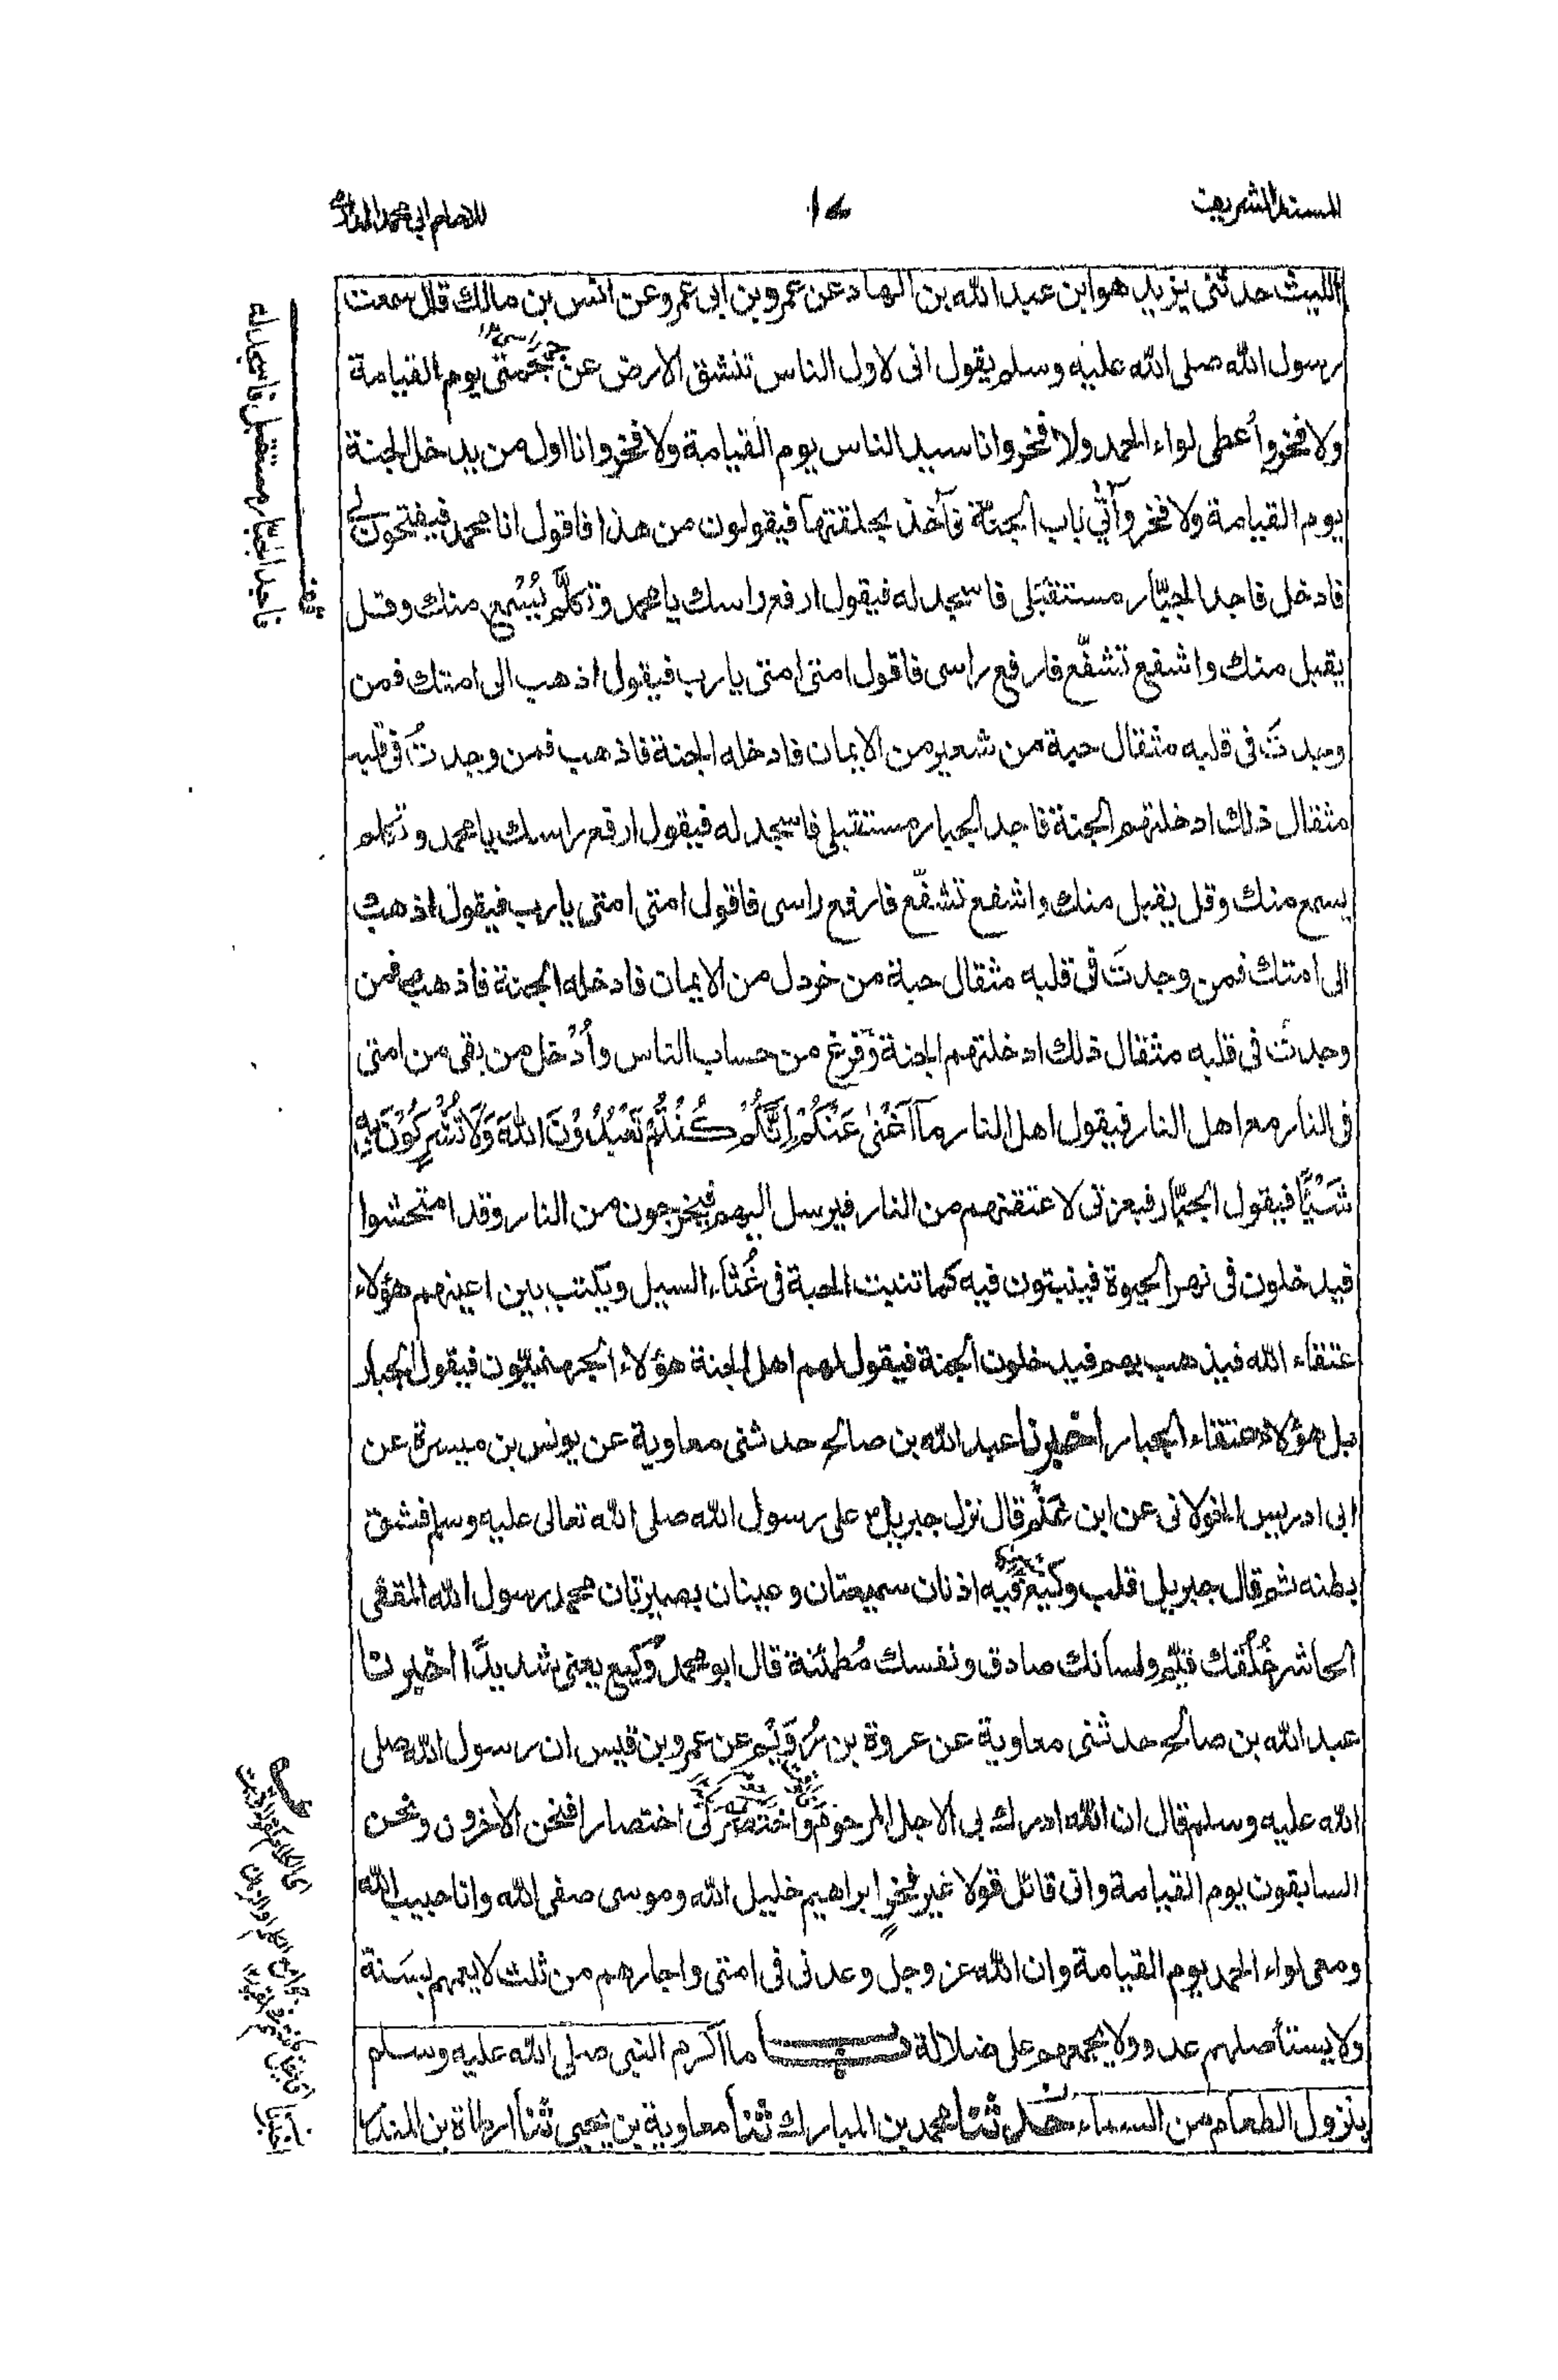 المسند الشريف
١٤
للامام ابي محمد الدارمي
الليث حدثنى يزيد هو ابن عبد الله بن الهاد عن عمرو بن ابى عمرو عن انس بن مالك قال سمعت
رسول الله صلى الله عليه وسلم يقول انى لاول الناس تنشق الارض عن جمجمتى يوم القيامة
ولا فخر وأُعطى لواء الحمد ولا فخر وانا سيد الناس يوم القيامة ولا فخر وانا اول من يدخل الجنة
يوم القيامة ولا فخر وآتى باب الجنة فآخذ بحلقتها فيقولون من هذا فاقول انا محمد فيفتحون لى
فادخل فاجد الجبّار مستقبلى فاسجد له فيقول ارفع راسك يا محمد وتكلّم يُسْمع منك وقل
يقبل منك واشفع تشفّع فارفع راسى فاقول امتى امتى يا رب فيقول اذهب الى امتك فمن
وجدتَ فى قلبه مثقال حبة من شعير من الايمان فادخله الجنة فاذهب فمن وجدتُ فى قلبه
مثقال ذلك ادخلتهم الجنة فاجد الجبار مستقبلى فاسجد له فيقول ارفع راسك يا محمد وتكلم
يسمع منك وقل يقبل منك واشفع تشفّع فارفع راسى فاقول امتى امتى يا رب فيقول اذهب
الى امتك فمن وجدتَ فى قلبه مثقال حبة من خردل من الايمان فادخله الجنة فاذهب فمن
وجدتُ فى قلبه مثقال ذلك ادخلتهم الجنة وفرغ من حساب الناس وأُدْخل من بقى من امتى
فى النار مع اهل النار فيقول اهل النار مَآ اَغْنٰى عَنْكُمْ اِنَّكُمْ كُنْتُمْ تَعْبُدُوْنَ اللهَ وَلَا تُشْرِكُوْنَ بِهٖ
شَيْئًا فيقول الجبّار فبعزتى لاعتقنهم من النار فيرسل اليهم فيخرجون من النار وقد امتحشوا
فيدخلون فى نهر الحيوة فينبتون فيه كما تنبت الحبة فى غُثآء السيل ويكتب بين اعينهم هؤلاء
عتقاء الله فيذهب بهم فيدخلون الجنة فيقول لهم اهل الجنة هؤلاء الجهنميّون فيقول الجبار
بل هؤلاء عتقاء الجبار اخبرنا عبد الله بن صالح حدثنى معاوية عن يونس بن ميسرة عن
ابى ادريس الخولانى عن ابن غَنْم قال نزل جبريل على رسول الله صلى الله تعالى عليه وسلم فشق
بطنه ثم قال جبريل قلب وكيع فيه اذنان سميعتان وعينان بصيرتان محمد رسول الله المقفى
الحاشر خُلُقك قيّم ولسانك صادق ونفسك مُطمئنة قال ابو محمد وَكيع يعنى شديدًا اخبرنا
عبد الله بن صالح حدثنى معاوية عن عروة بن رُوَيْم عن عمرو بن قيس ان رسول الله صلى
الله عليه وسلم قال ان الله ادرك بى الاجل المرحوم واختصر لى اختصارا فنحن الآخرون ونحن
السابقون يوم القيامة وانى قائل قولا غير فخرٍ ابراهيم خليل الله وموسى صفى الله وانا حبيب الله
ومعى لواء الحمد يوم القيامة وان الله عز وجل وعدنى فى امتى واجارهم من ثلث لا يعمهم بسَنة
ولا يستأصلهم عدو ولا يجمعهم على ضلالة باب ما اكرم النبى صلى الله عليه وسلم
بنزول الطعام من السماء حدثنا محمد بن المبارك ثنا معاوية بن يحيى ثنا ارطاة بن المنذر
فاجد الجبّار مستقبل فاسجد له